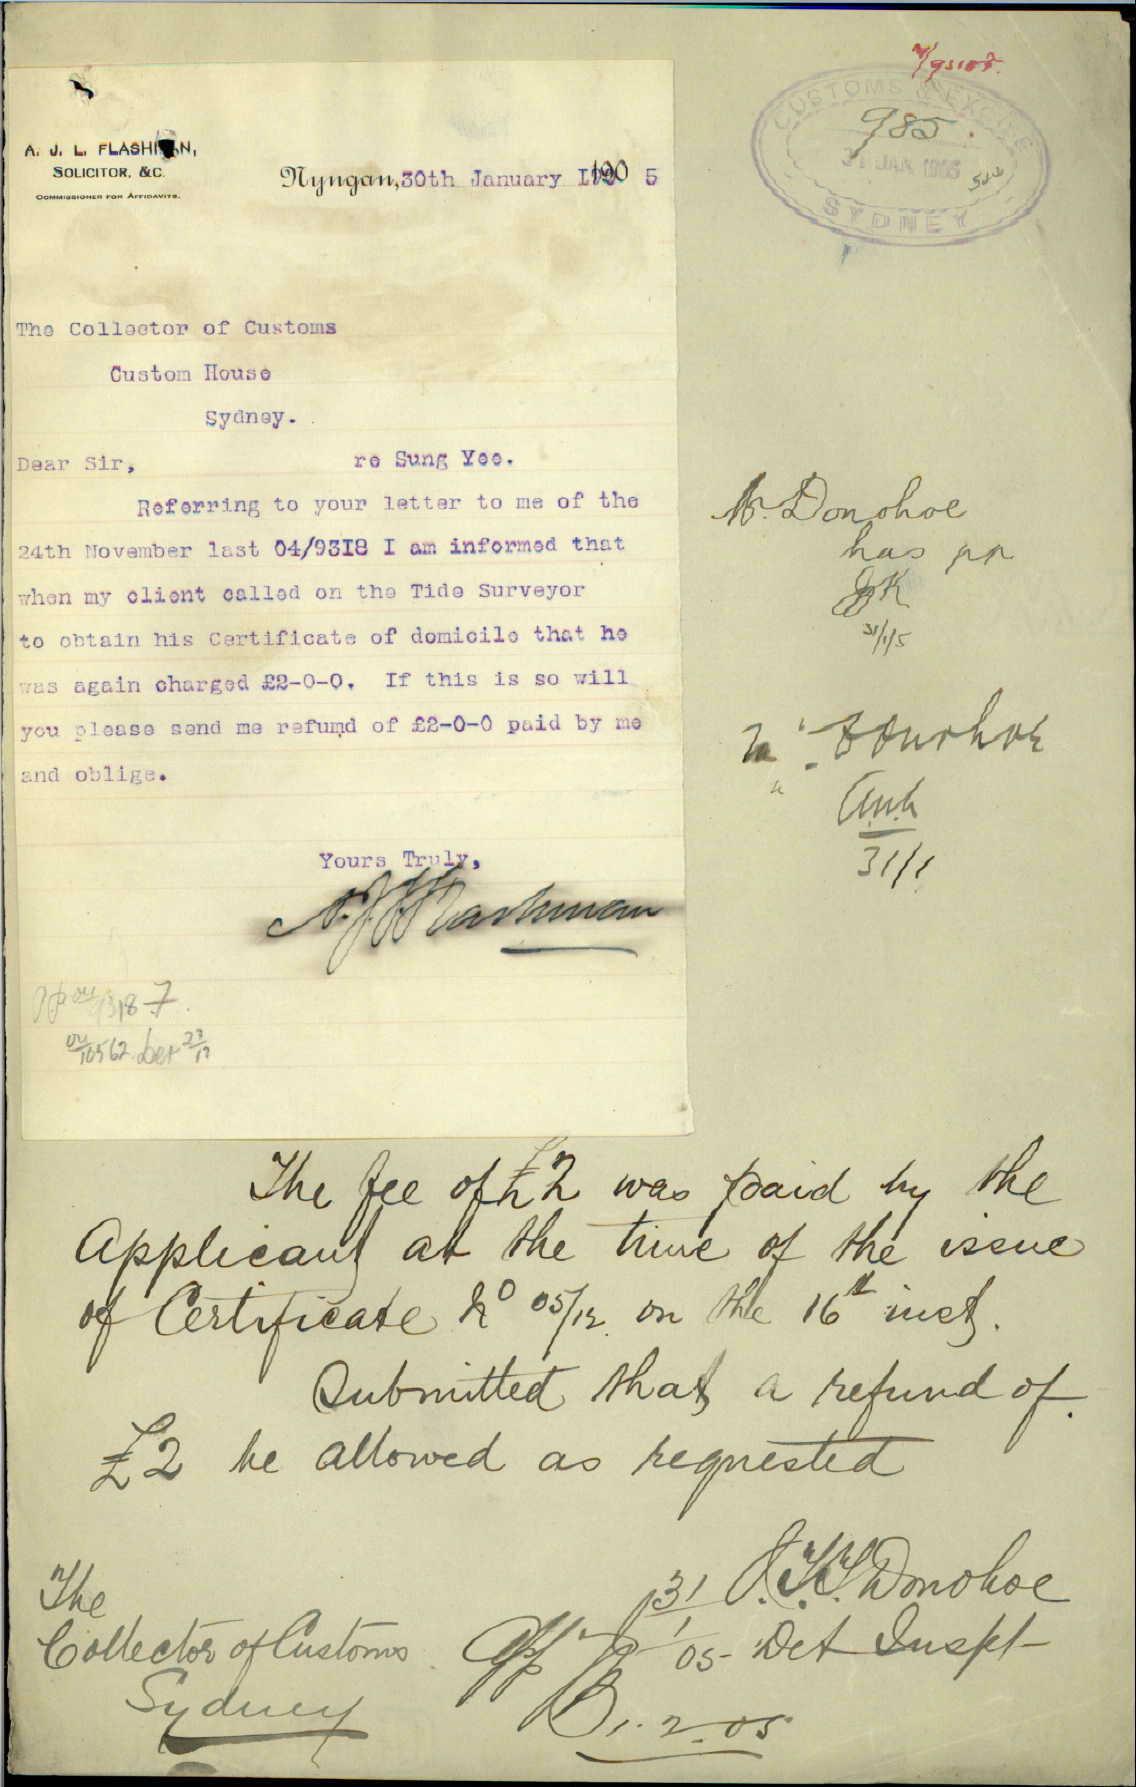 A. J. L. FLASHMAN,
SOLICITOR, &C.
COMMISSIONER FOR AFFIDAVITS.
Nyngan, 30th January 190 5
CUSTOMS & EXCISE
985
31 JAN. 1905
SYDNEY
The Collector of Customs
Custom House
Sydney.
Dear Sir, re Sung Yee.
Referring to your letter to me of the
24th November last 04/93I8 I am informed that
when my client called on the Tide Surveyor
to obtain his Certificate of domicile that he
was again charged £2-0-0. If this is so will
you please send me refumd of £2-0-0 paid by me
and oblige.
Yours Truly,
A. J. L. Flashman
04/10562
Mr. Donohoe
has pp
31/1/5
Mr. Donohoe
31/1
The fee of £2 was paid by the
Applicant at the time of the issue
of Certificate No 05/12 on the 16th inst.
Submitted that a refund of
£2 be allowed as requested
J.T.T. Donohoe
Det Inspt
31/1/05
The
Collector of Customs
Sydney
App
1.2.05